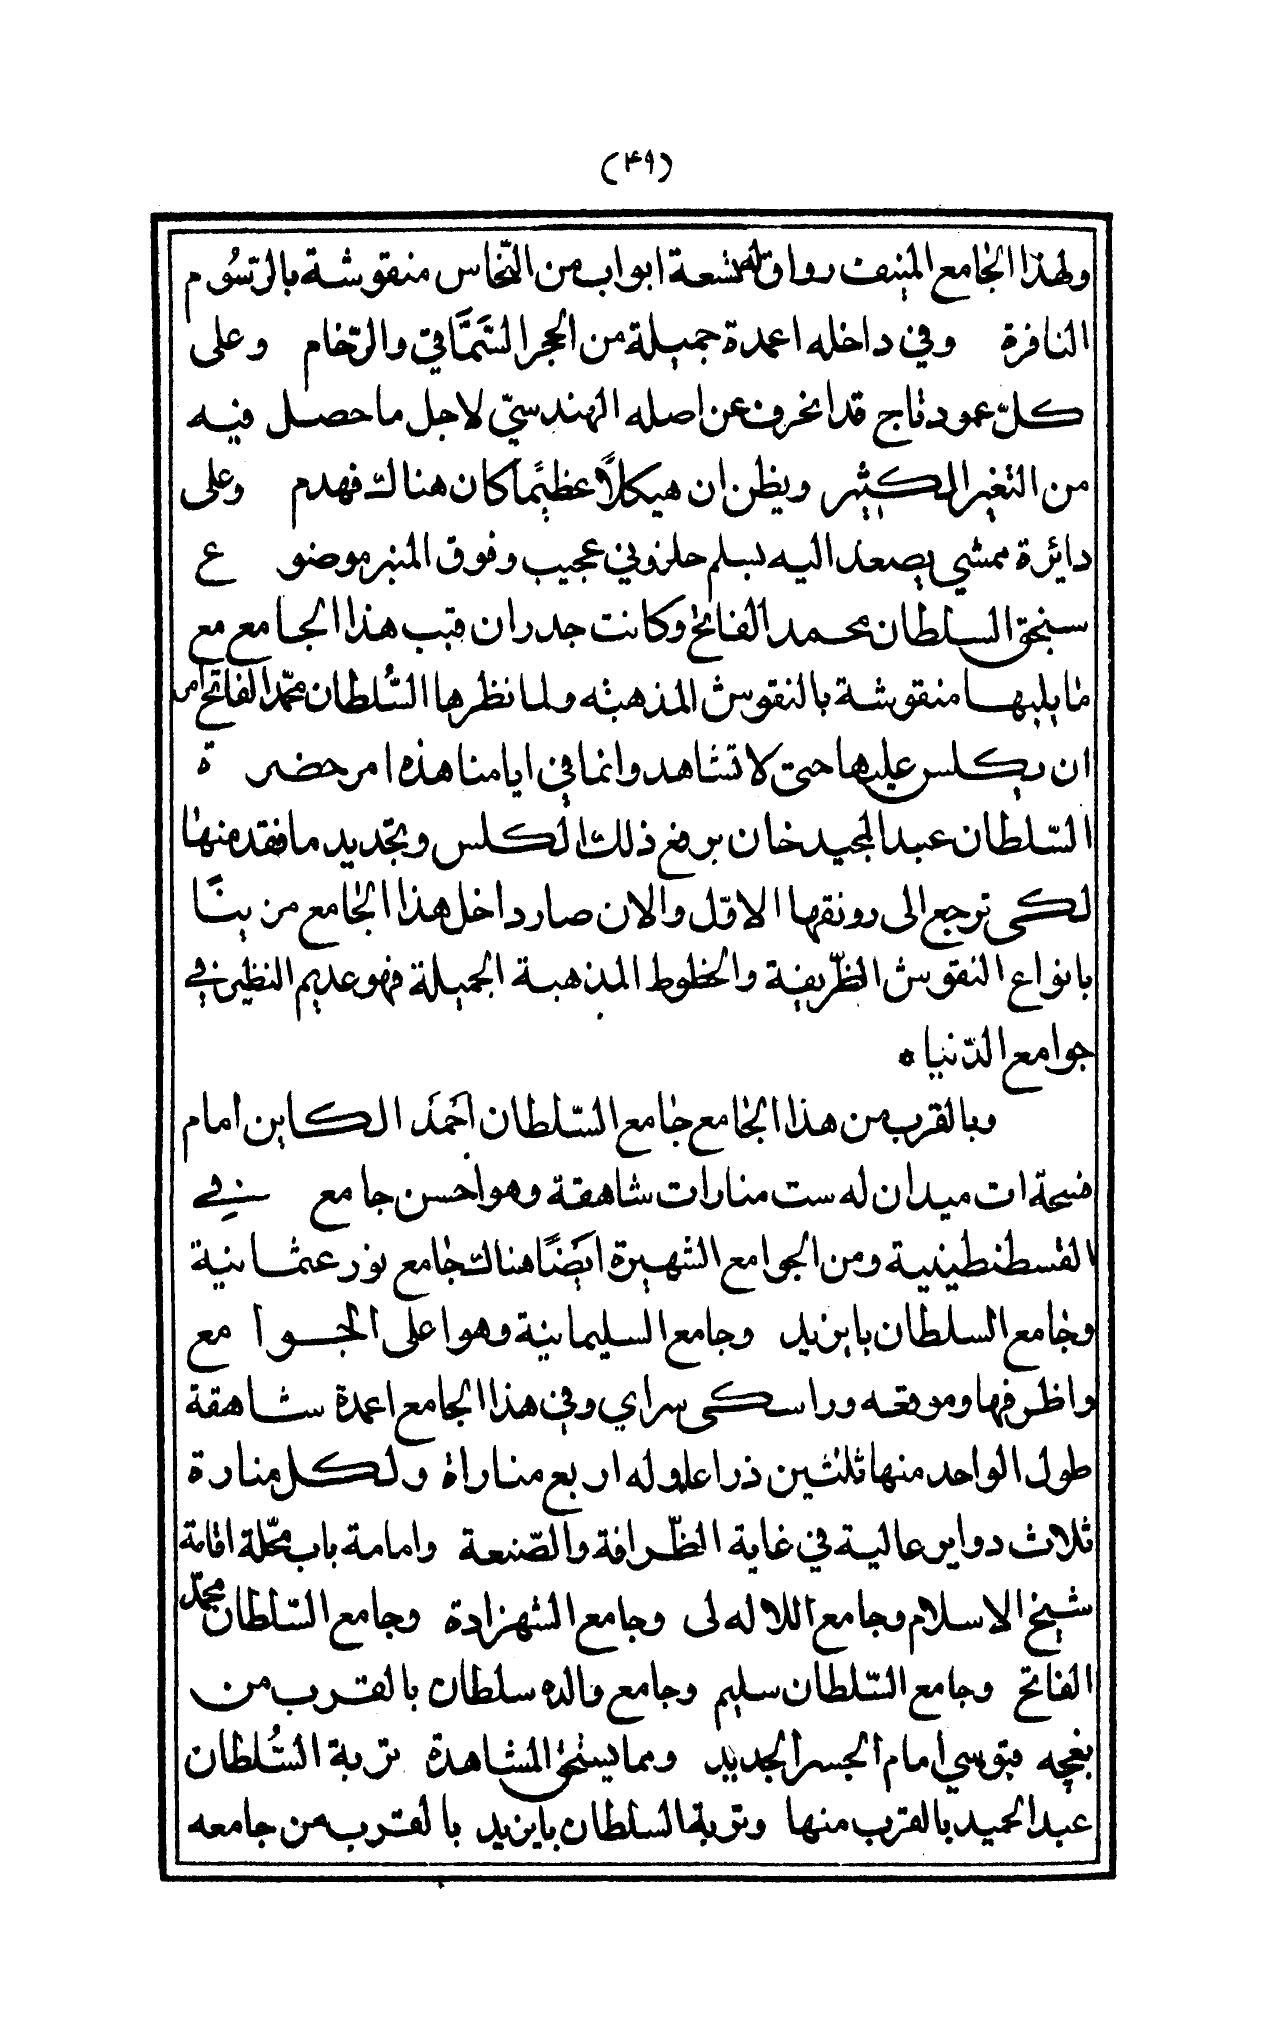 (٤٩)
ولهذا الجامع المنيف رواق له تسعة ابواب من النّحاس منقوشة بالرّسُوم
النافرة وفي داخله اعمدة جميلة من الحجر السَّمَّاقيّ والرّخام وعلى
كلّ عمود تاج قد انحرف عن اصله الهندسيّ لاجل ما حصل فيه
من التغير الكثير ويظن ان هيكلاً عظيماً كان هناك فهدم وعلى
دايرة ممشي يصعد اليه بسلم حلزوني عجيب وفوق المنبر موضو ع
سنجق السلطان محمد الفاتح وكانت جدران قبب هذا الجامع مع
ما يليها منقوشة بالنقوش المذهبه ولما نظرها السُّلطان محمّد الفاتح امر
ان يكلس عليها حتى لا تشاهد وانما في ايامنا هذه امر حضر ة
السّلطان عبد المجيد خان برفع ذلك الكلس وبتجديد ما فقد منها
لكى ترجع الى رونقها الاوّل والان صار داخل هذا الجامع مزيناً
بانواع النقوش الظّريفة والخطوط المذهبة الجميلة فهو عديم النظير في
جوامع الدّنيا ٥
وبالقرب من هذا الجامع جامع السّلطان احمَد الكاين امام
فسحة ات ميدان له ست منارات شاهقة وهو احسن جامع في
القسطنطينية ومن الجوامع الشهيرة ايضاً هناك جامع نور عثمانية
وجامع السلطان بايزيد وجامع السليمانية وهو اعلى الجوا مع
واظرفها وموقعه ورا سكى سراي وفي هذا الجامع اعمدة شاهقة
طول الواحد منها ثلثين ذراعا وله اربع مناراة ولكل منارة
ثلاث دواير عالية في غاية الظّرافة والصّنعة وامامة باب محلّة اقامة
شيخ الاسلام وجامع اللاله لى وجامع الشهزادة وجامع السّلطان محمّد
الفاتح وجامع السّلطان سليم وجامع والده سلطان بالقرب من
بغچه قپوسي امام الجسر الجديد ومما يستحق المشاهدة تربة السُّلطان
عبد الحميد بالقرب منها وتربة السلطان بايزيد بالقرب من جامعه